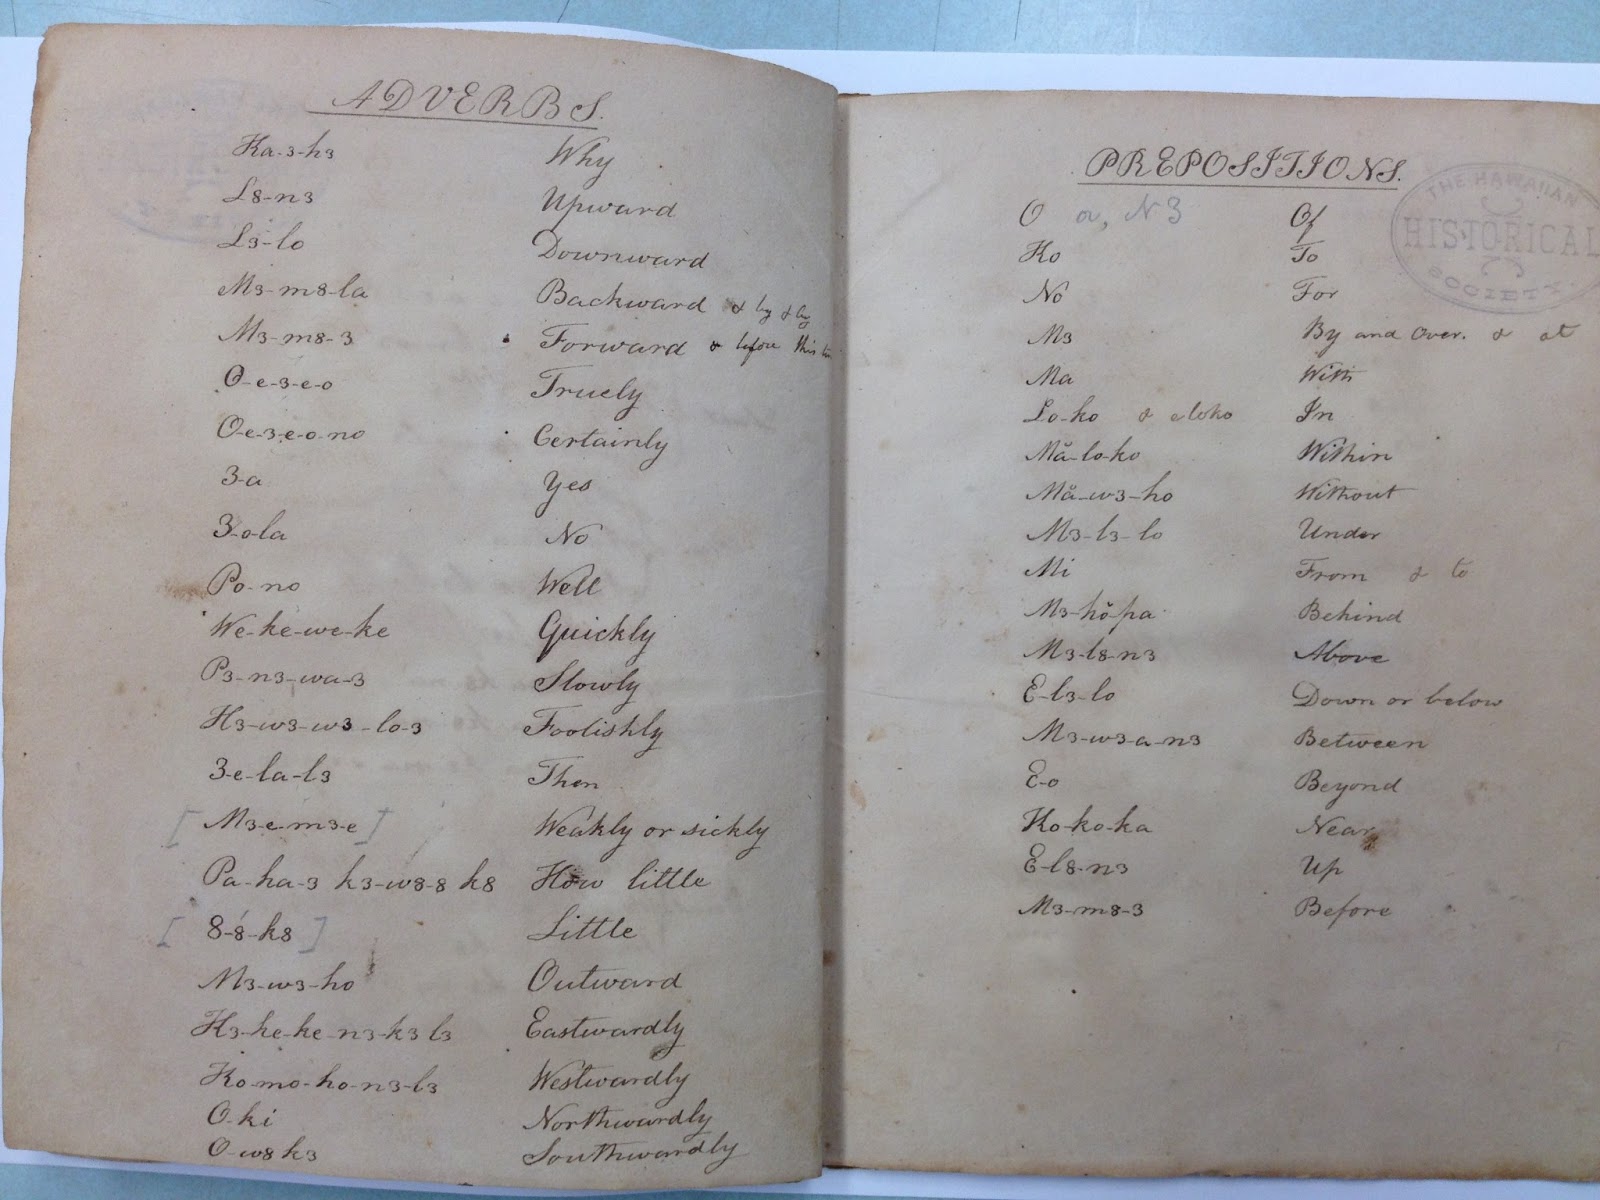 ADVERBS.
Ka-3-h3 Why
L8-n3 Upward
L3-lo Downward
M3-m8-la Backward & by & by
M3-m8-3 Forward & before this
O-e-3-e-o Truely
O-e-3-e-o-no Certainly
3-a Yes
3-o-la No
Po-no Well
We-ke-we-ke Quickly
P3-n3-wa-3 Slowly
H3-w3-w3-lo-3 Foolishly
3-e-la-l3 Then
[M3-e-m3-e] Weakly or sickly
Pa-ha-3 k3-w8-8 k8 How little
[8-8-k8] Little
M3-w3-ho Outward
H3-ke-ke-n3-k3 l3 Eastwardly
Ko-mo-ho-n3-l3 Westwardly
O-ki Northwardly
O-w8 k3 Southwardly
PREPOSITIONS.
O a, N3 Of
Ko To
No For
M3 By and Over. & at
Ma With
Lo-ko & eloko In
Mă-lo-ko Within
Mă-w3-ho Without
M3-l3-lo Under
Mi From & to
M3-hŏpa Behind
M3-l8-n3 Above
E-l3-lo Down or below
M3-w3-a-n3 Between
E-o Beyond
Ko-ko-ka Near
E-l8-n3 Up
M3-m8-3 Before
THE HAWAIIAN
HISTORICAL
SOCIETY